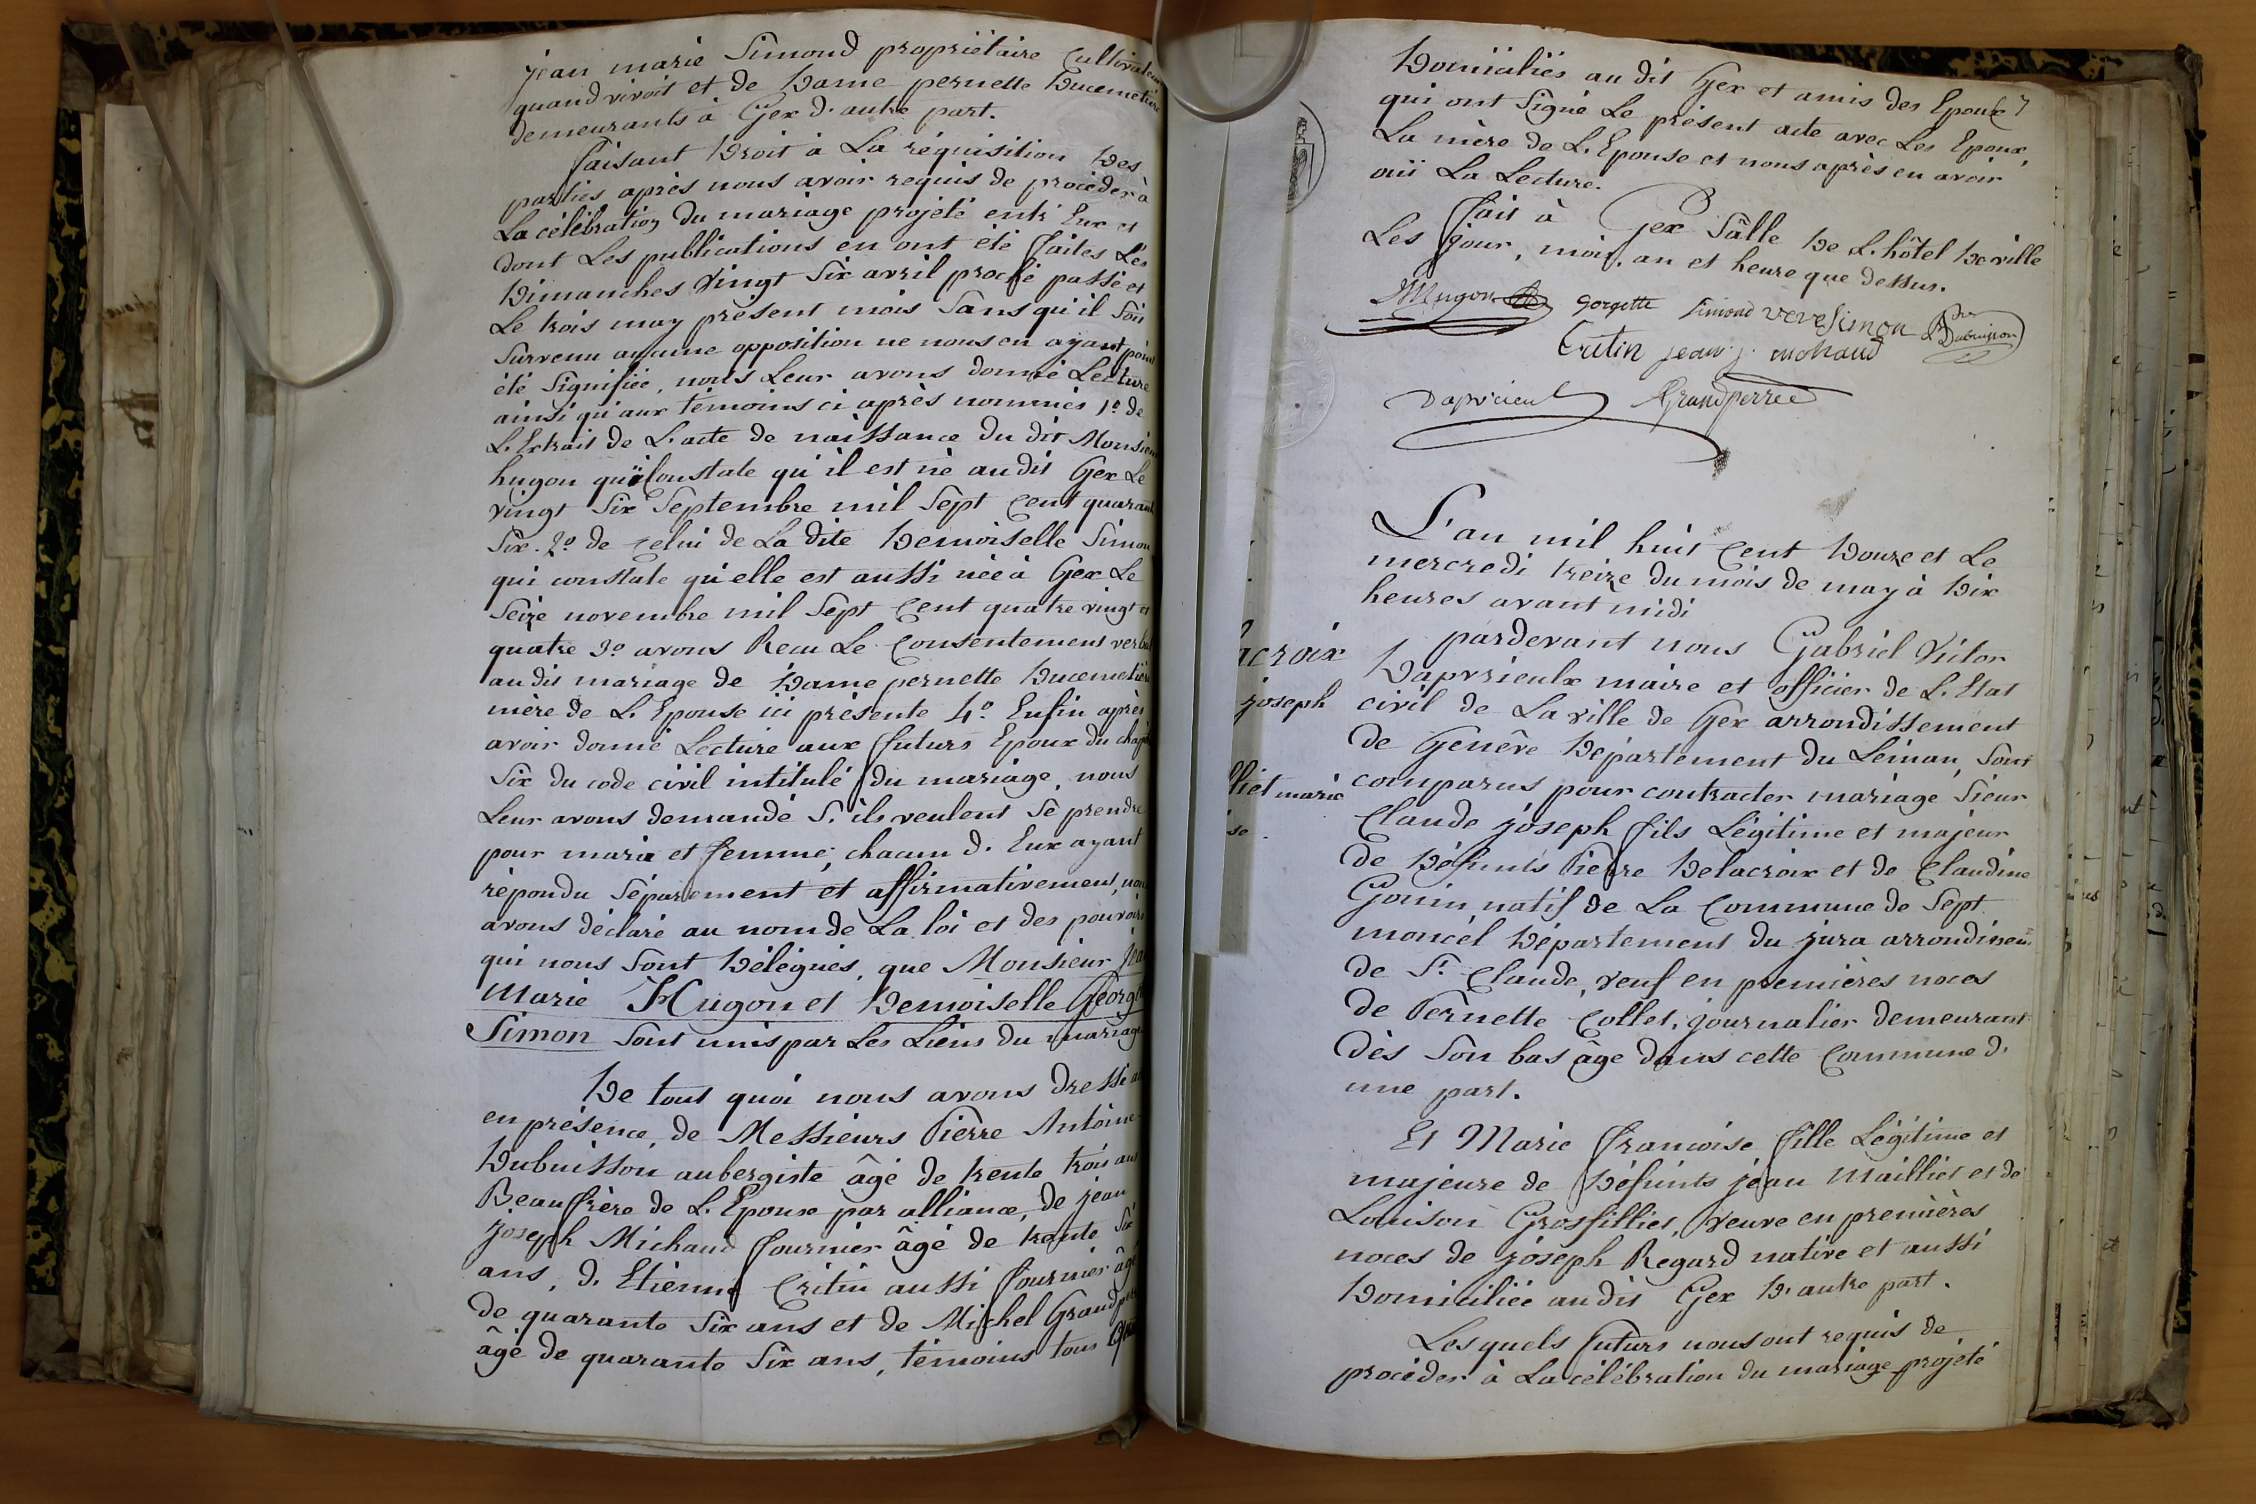 jean marie Simond propriétaire Cultivateur
quand vivoit et de Dame pernette Ducemetière
demeurants à Gex d'autre part.
faisant Droit à La réquisition Des
parties après nous avoir requis de procéder à
La célébration du mariage projeté entr'Eux et
dont Les publications en ont été faites Les
Dimanches Vingt Six avril proche passé et
Le trois may présent mois Sans qu'il Soit
Survenu aucune opposition ne nous en ayant point
été Signifiée, nous Leur avons donné Lecture
ainsi qu'aux témoins ci après nommés 1º. de
L'Extrait de L'acte de naissance du dit Monsieur
hugon qui Constate qu'il est né au dit Gex Le
vingt Six Septembre mil Sept Cent quarante
Six. 2º de celui de La dite Demoiselle Simon
qui constate qu'elle est aussi née à Gex Le
Seize novembre mil Sept Cent quatre vingt et
quatre 3º avons Reçu Le Consentement verbal
au dit mariage de Dame pernette Ducemetière
mère de L'Epouse ici présente 4º. Enfin après
avoir donné Lecture aux futurs Epoux du chapitre
Six du code civil intitulé du mariage, nous
Leur avons demandé S'ils veulent Se prendre
pour mari et femme, chacun d'Eux ayant
répondu Séparement et affirmativement, nous
avons déclaré au nom de La loi et des pouvoirs
qui nous Sont Délégués, que Monsieur Jean
Marie Hugon et Demoiselle Georgette
Simon Sont unis par Les Liens du mariage
De tout quoi nous avons Dressé acte
en présence, de Messieurs Pierre Antoine
Dubuisson aubergiste âgé de trente trois ans
Beaufrère de L'Epouse par alliance, de jean
joseph Michaud fournier âgé de trente Six
ans, d'Etienne Critin aussi fournier âgé
de quarante Six ans et de Michel Grandperret
âgé de quarante Six ans, témoins tous
Domiciliés au dit Gex et amis des Epoux
qui ont Signé Le présent acte avec Les Epoux,
La mère de L'Epouse et nous après en avoir
ouï La Lecture.
fait à Gex Sâlle De L'hôtel De ville
Les jour, mois, an et heure que dessus.
Hugon gorgette Simond veve Simon Dubuisson
Critin jean j. michaud
Dapvrieulx Grandperret
L'an mil huit Cent Douze et Le
mercredi treize du mois de may à Dix
heures avant midi
pardevant nous Gabriel Victor
Dapvrieulx maire et officier de L'Etat
civil de La ville de Gex arrondissement
de Genêve Département du Léman, Sont
comparus pour contracter mariage Sieur
Claude joseph fils Légitime et majeur
de Défunts Pierre Delacroix et de Claudine
Gouin, natif de La Commune de Sept
moncel Département du jura arrondissem.
de St. Claude, veuf en premières noces
de Pernette Collet, journalier demeurant
dès Son bas âge dans cette Commune d'
une part.
Et Marie françoise fille Légitime et
majeure de Défunts jean Mailliet et de
Louison Grosfilliet, veuve en premières
noces de joseph Regard native et aussi
Domiciliée au dit Gex D'autre part.
Lesquels futurs nous ont requis de
procéder à La célébration du mariage projeté
acroix
joseph
lliet marie
se